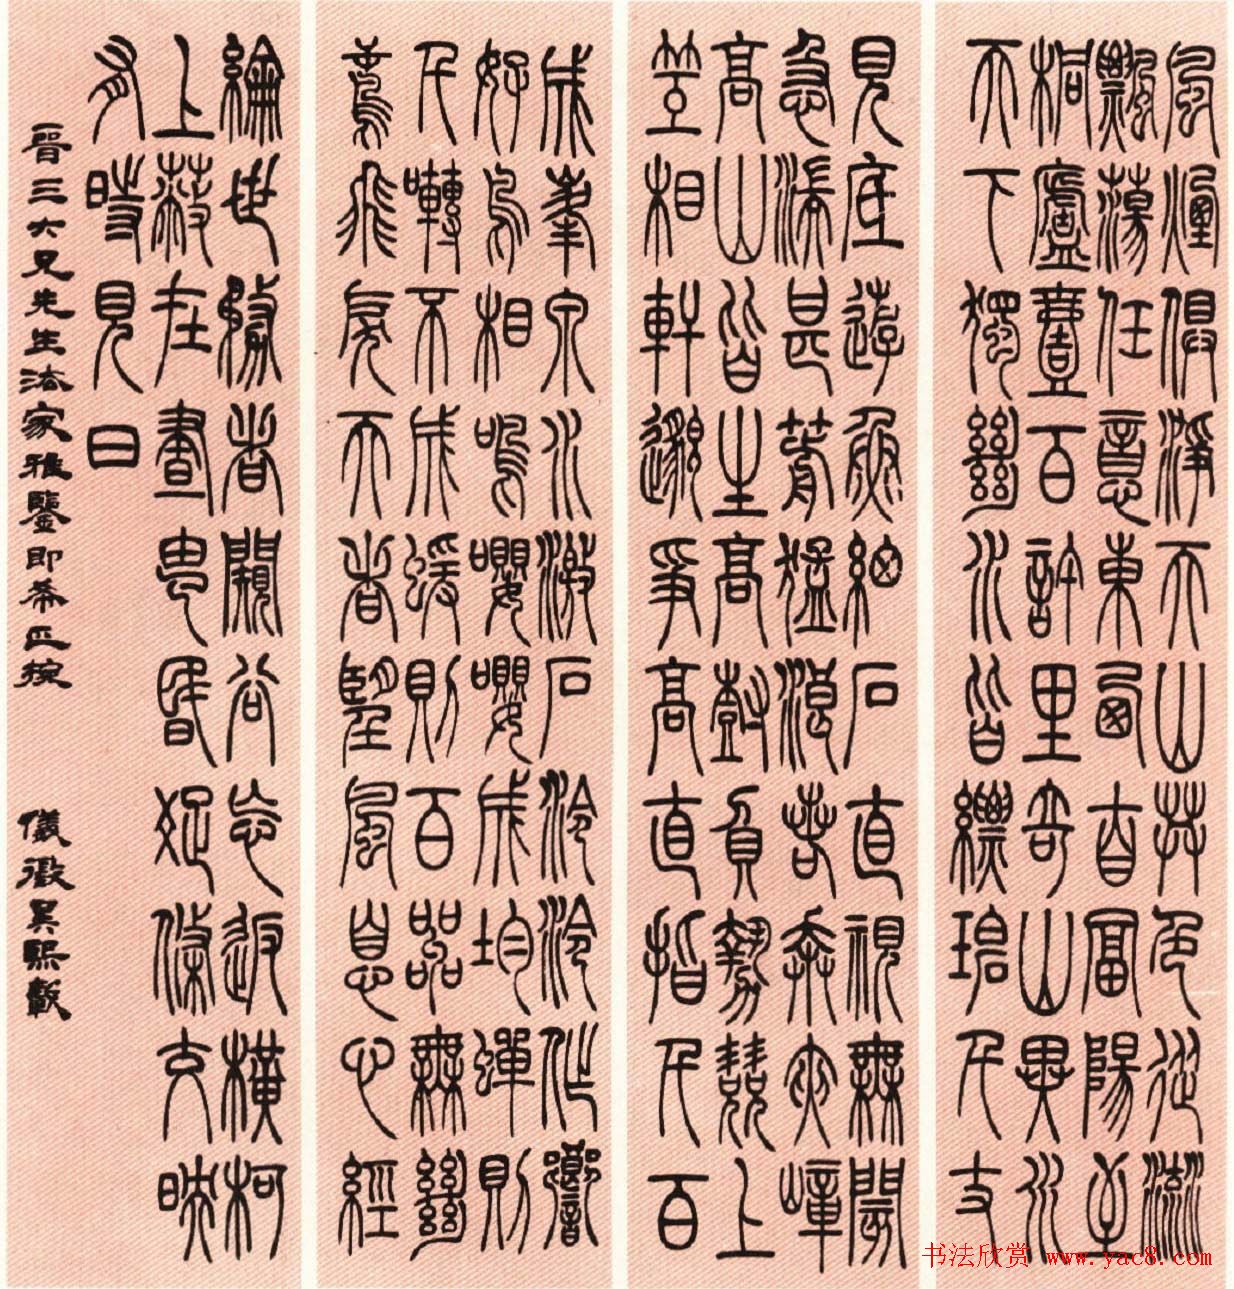 風煙俱淨天山共色從流
飄蕩任意東西自富陽至
桐廬壹百許里奇山異水
天下獨絕水皆縹碧千丈
見底游魚細石直視無閡
急湍甚箭猛浪若奔夾嶂
高山皆生高樹負勢競上
互相軒邈爭高直指千百
成峯泉水激石泠泠作響
好鳥相鳴嚶嚶成均蟬則
千囀不成蝯則百嘂無絕
鳶飛戾天者望風息心經
綸世務者闚谷忘返橫柯
上蔽在晝猶昏疏條交映
有時見日
晉三大兄先生法家雅鑒即希正捥 儀徵吳熙載
书法欣赏 www.yac8.com